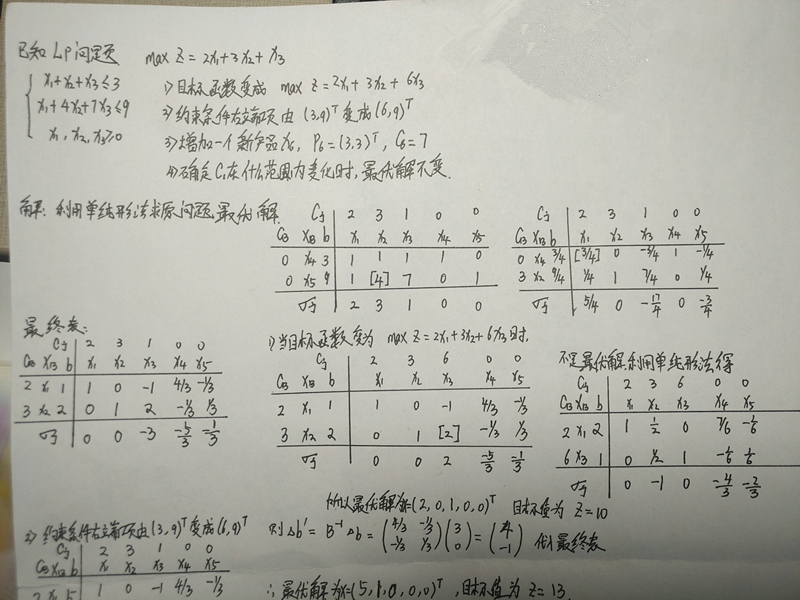 已知LP问题 max Z = 2x₁+3x₂+x₃
x₁+x₂+x₃≤3
x₁+4x₂+7x₃≤9
x₁,x₂,x₃≥0
1) 目标函数变成 max Z=2x₁+3x₂+6x₃
2) 约束条件右端项由(3,9)ᵀ变成(6,9)ᵀ
3) 增加一个新产品x₆, P₆=(3,3)ᵀ, C₆=7
4) 确定C₁在什么范围内变化时,最优解不变.
解: 利用单纯形法求原问题最优解.
Cj 2 3 1 0 0
CB XB b x₁ x₂ x₃ x₄ x₅
0 x₄ 3 1 1 1 1 0
0 x₅ 9 1 [4] 7 0 1
σj 2 3 1 0 0
Cj 2 3 1 0 0
CB XB b x₁ x₂ x₃ x₄ x₅
0 x₄ 3/4 [3/4] 0 -3/4 1 -1/4
3 x₂ 9/4 1/4 1 7/4 0 1/4
σj 5/4 0 -17/4 0 -3/4
最终表:
Cj 2 3 1 0 0
CB XB b x₁ x₂ x₃ x₄ x₅
2 x₁ 1 1 0 -1 4/3 -1/3
3 x₂ 2 0 1 2 -1/3 1/3
σj 0 0 -3 -5/3 -1/3
1) 当目标函数变为 max Z=2x₁+3x₂+6x₃时,
Cj 2 3 6 0 0
CB XB b x₁ x₂ x₃ x₄ x₅
2 x₁ 1 1 0 -1 4/3 -1/3
3 x₂ 2 0 1 [2] -1/3 1/3
σj 0 0 2 -5/3 -1/3
不是最优解,利用单纯形法得
Cj 2 3 6 0 0
CB XB b x₁ x₂ x₃ x₄ x₅
2 x₁ 2 1 1/2 0 7/6 -1/6
6 x₃ 1 0 1/2 1 -1/6 1/6
σj 0 -1 0 -4/3 -2/3
所以最优解为x=(2,0,1,0,0)ᵀ 目标值为 Z=10
2) 约束条件右端项由(3,9)ᵀ变成(6,9)ᵀ 则Δb′=B⁻¹Δb=(4/3 -1/3 -1/3 1/3)(3 0)=(4 -1) 代入最终表
Cj 2 3 1 0 0
CB XB b x₁ x₂ x₃ x₄ x₅
2 x₁ 5 1 0 -1 4/3 -1/3
∴最优解为x=(5,1,0,0,0)ᵀ,目标值为 Z=13.